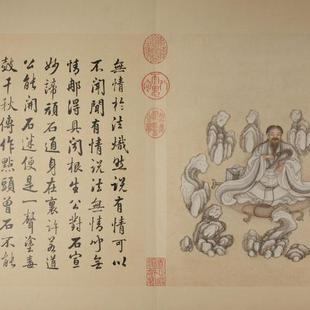 無情於法熾然說有情可以
不聞聞有情說法無情無
情那得具聞根生公對石宣
妙諦頑石道身在裏許若道
公能石便是一聲塗毒
鼓千秋傳作點頭石不能